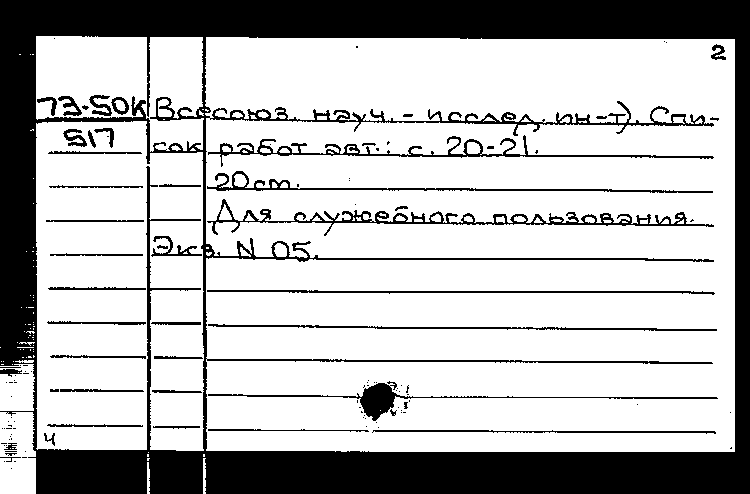 2
73-50к Всесоюз. науч. - исслед. ин-т). Спи-
517 сок работ авт.: с. 20-21.
20 см.
Для служебного пользования.
Экз. N 05.
ч